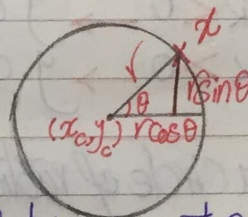 x
r
θ
rsinθ
(xc, yc) rcosθ